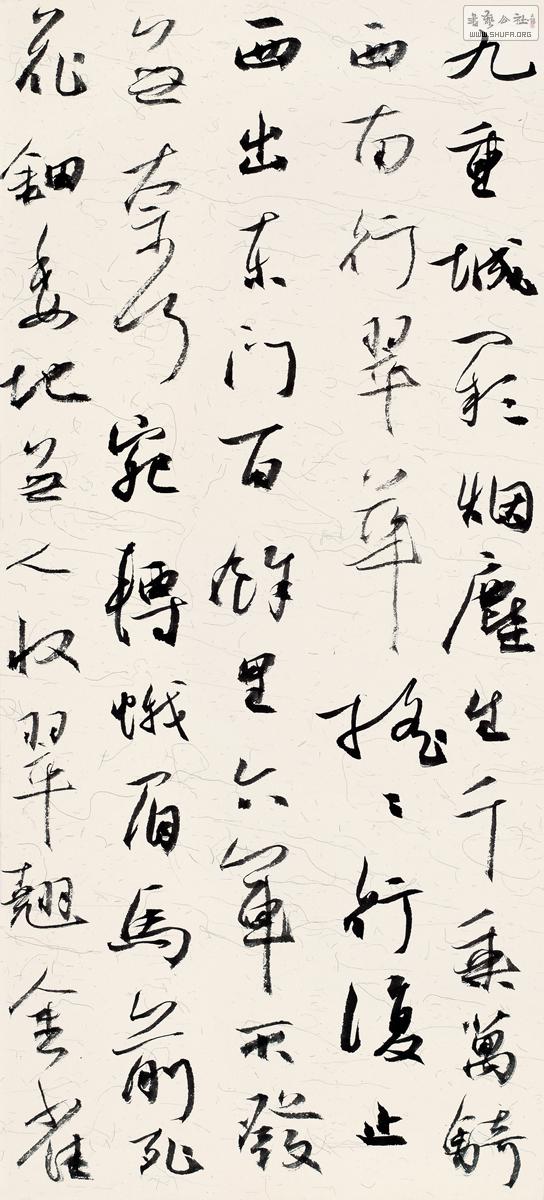 九重城闕烟塵生千乘萬騎
西南行翠華搖〻行復止
西出東門百餘里六軍不發
無奈何宛轉蛾眉馬前死
花鈿委地無人收翠翹金雀
書藝公社
WWW.SHUFA.ORG